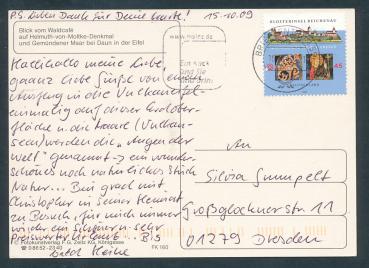 P.S. Lieben Dank für Deine Karte! 15.10.09
Blick vom Waldcafé
auf Helmuth-von-Moltke-Denkmal
und Gemündener Maar bei Daun in der Eifel
www.mainz.de
KLOSTERINSEL REICHENAU
45
Hallihallo meine Liebe,
gaaanz liebe Grüße von
in die Vulkaneifel-
einmalig auf dieser Erdober-
fläche u. die Maare (Vulkan-
seen) werden die "Augen der
Welt" genannt -> ein wunder-
schönes noch natürliches Stück
Natur... Bin grad mit
Christopher in seiner Heimat
zu Besuch, für mich immer
wieder ein schöner u. sehr
preiswerter Urlaub... Bis
bald Heike
An
Silvia Gumpelt
Großglocknerstr. 11
01279 Dresden
© Fotokunstverlag P.G. Zeitz KG, Königssee
0 86 52 - 23 40
FK 160